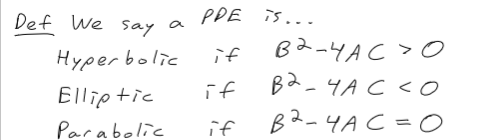 Def We say a PDE is...
Hyperbolic if B²-4AC > 0
Elliptic if B²-4AC < 0
Parabolic if B²-4AC = 0